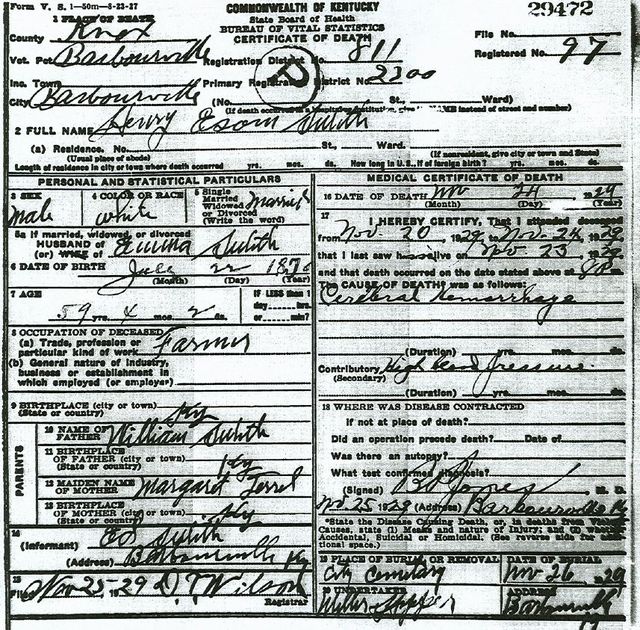 Form V. S. 1—50m—8-23-27
COMMONWEALTH OF KENTUCKY
State Board of Health
BUREAU OF VITAL STATISTICS
CERTIFICATE OF DEATH
29472
1 PLACE OF DEATH
County Knox
File No.
Registered No. 97
Vot. Pct. Barbourville Registration District No. 811
Inc. Town Primary Registration District No. 2200
City Barbourville (No. St., Ward)
(If death occurred in a hospital or institution, give NAME instead of street and number)
2 FULL NAME Henry Esom
(a) Residence. No. St., Ward.
(Usual place of abode) (If nonresident, give city or town and State)
Length of residence in city or town where death occurred yrs. mos. ds. How long in U. S., if of foreign birth? yrs. mos. ds.
PERSONAL AND STATISTICAL PARTICULARS
3 SEX Male
4 COLOR OR RACE white
5 Single Married Widowed or Divorced (Write the word) Married
5a If married, widowed, or divorced
HUSBAND of Emma
(or) WIFE of
6 DATE OF BIRTH July 22 1870
(Month) (Day) (Year)
7 AGE 59 yrs. 4 mos. 2 ds.
IF LESS than 1 day hrs. or min?
8 OCCUPATION OF DECEASED
(a) Trade, profession or particular kind of work Farmer
(b) General nature of industry, business or establishment in which employed (or employer)
9 BIRTHPLACE (city or town)
(State or country) Ky
PARENTS
10 NAME OF FATHER William
11 BIRTHPLACE OF FATHER (city or town)
(State or country) Ky
12 MAIDEN NAME OF MOTHER Margaret Terrel
13 BIRTHPLACE OF MOTHER (city or town)
(State or country) Ky
14
(Informant) Ed
(Address) Barbourville Ky
15
Filed Nov 25 - 29 D T Wilson
Registrar
MEDICAL CERTIFICATE OF DEATH
16 DATE OF DEATH Nov 24 1929
(Month) (Day) (Year)
17 I HEREBY CERTIFY, That I attended deceased
from Nov. 20 1929 to Nov. 24 1929
that I last saw him alive on Nov 23 1929
and that death occurred on the date stated above at 8 m.
The CAUSE OF DEATH was as follows:
Cerebral Hemorrhage
(Duration) yrs. mos. ds.
Contributory High blood pressure.
(Secondary)
(Duration) yrs. mos. ds.
18 WHERE WAS DISEASE CONTRACTED
if not at place of death?
Did an operation precede death? Date of
Was there an autopsy?
What test confirmed diagnosis?
(Signed) Jones M. D.
Nov. 25 1929 (Address) Barbourville Ky
*State the Disease Causing Death, or, in deaths from Violent Causes, state (1) Means and nature of Injury; and (2) whether Accidental, Suicidal or Homicidal. (See reverse side for additional space.)
19 PLACE OF BURIAL OR REMOVAL City Cemetery
DATE OF BURIAL Nov 26 1929
20 UNDERTAKER Miller
ADDRESS Barbourville Ky